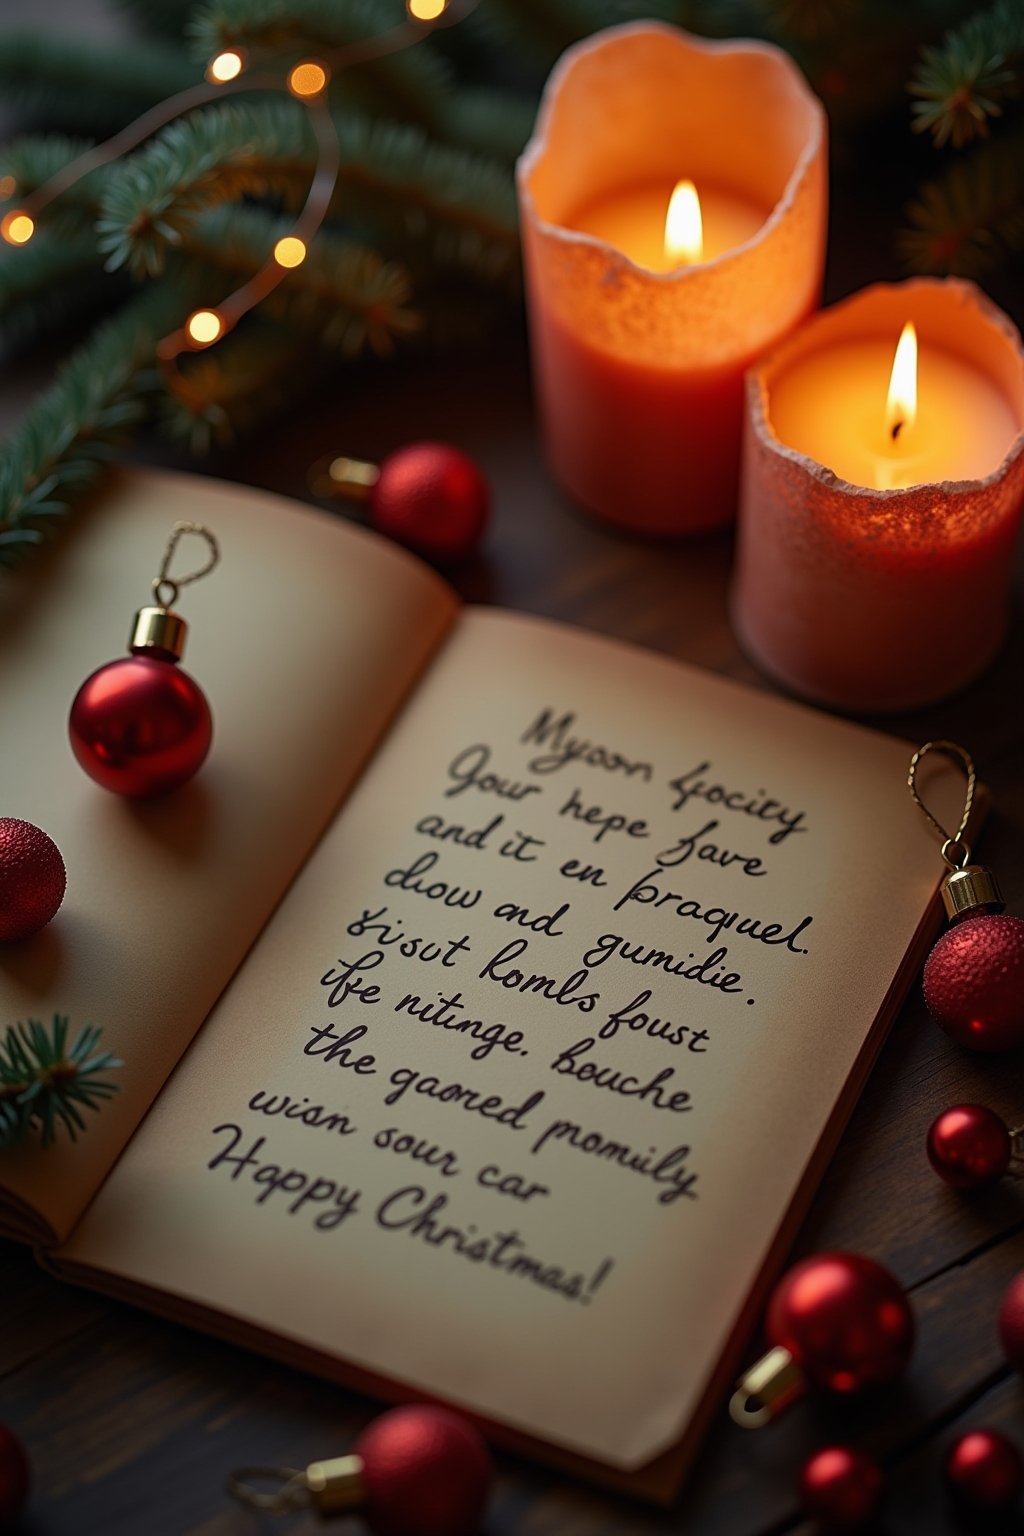 Myoon focity
Gour hepe fave
and it en praquel.
diow and gumidie.
Yisut komls foust
ife nitinge. bouche
the gaored pomiily
wisn sour car
Happy Christmas!